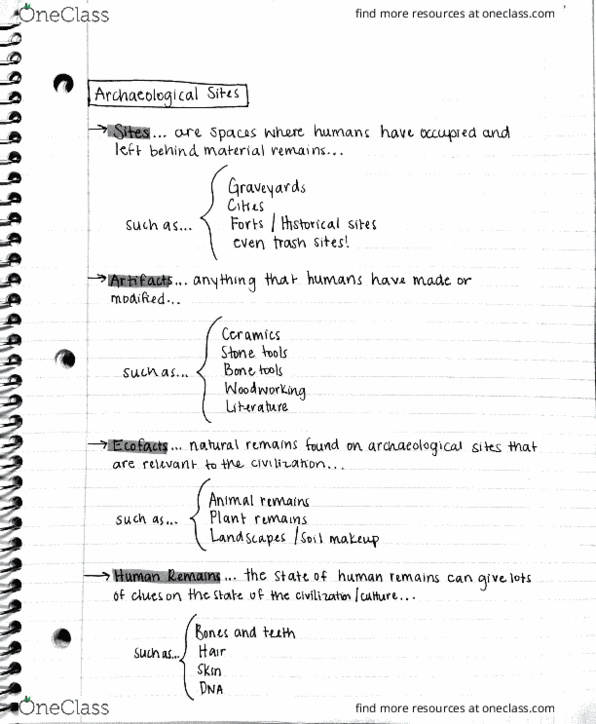 OneClass
find more resources at oneclass.com
Archaeological Sites
→ Sites... are spaces where humans have occupied and
left behind material remains...
Graveyards
Cities
such as... Forts / Historical sites
even trash sites!
→ Artifacts... anything that humans have made or
modified...
Ceramics
Stone tools
such as... Bone tools
Woodworking
Literature
→ Ecofacts... natural remains found on archaeological sites that
are relevant to the civilization...
Animal remains
such as... Plant remains
Landscapes / Soil makeup
→ Human Remains... the state of human remains can give lots
of clues on the state of the civilization/culture...
Bones and teeth
such as... Hair
Skin
DNA
OneClass
find more resources at oneclass.com